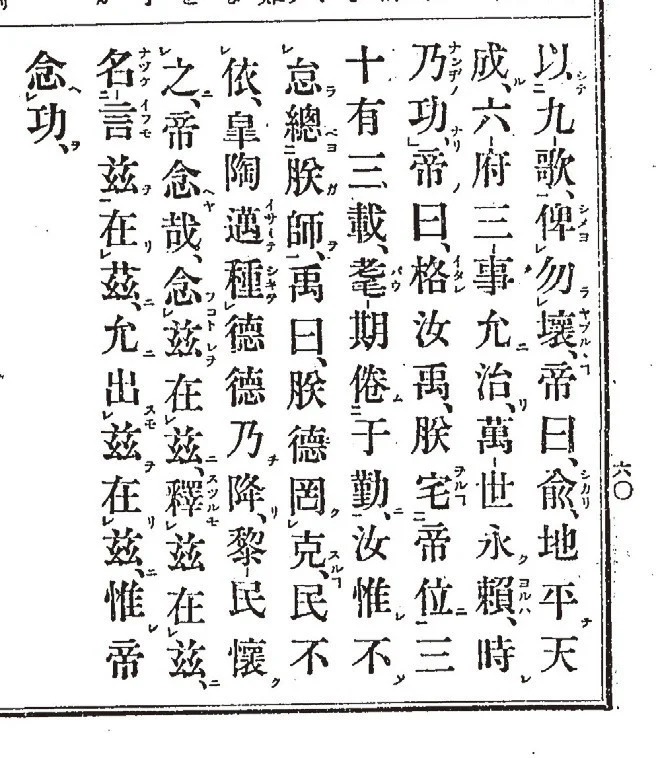 以九歌、俾勿壞、帝曰、兪、地平天
成、六府三事允治、萬世永賴、時
乃功、帝曰、格汝禹、朕宅帝位三
十有三載、耄期倦于勤、汝惟不
怠、總朕師、禹曰、朕德罔克、民不
依、皐陶邁種德德乃降、黎民懷
之、帝念哉、念茲在茲、釋茲在茲、
名言茲在茲、允出茲在茲、惟帝
念功、
六〇